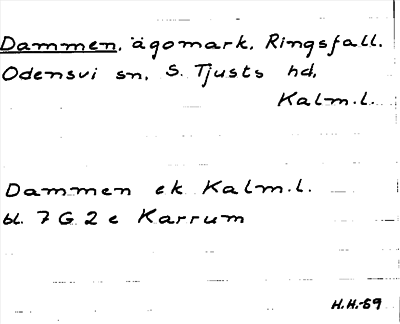 Dammen, ägomark, Ringsfall.
Odensvi sn, S. Tjusts hd,
Kalm.l.
Dammen ek Kalm.l.
bl. 7 G 2 e Karrum
H.H.-59